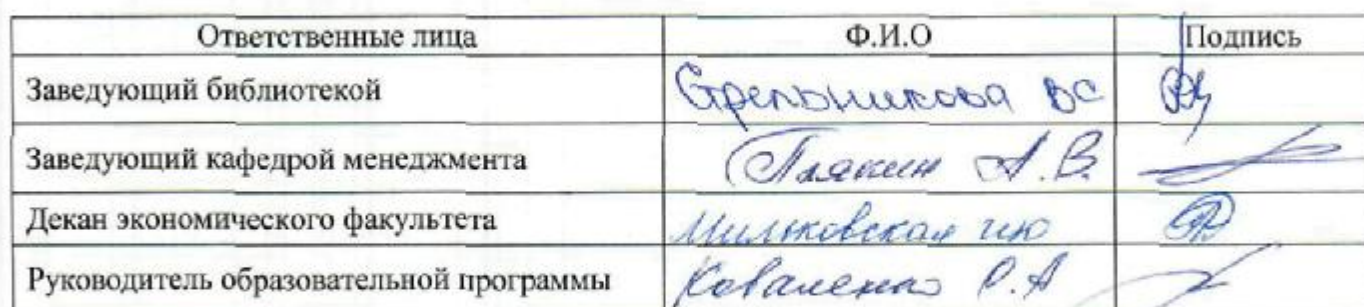 Ответственные лица Ф.И.О Подпись
Заведующий библиотекой Стрельникова ВС
Заведующий кафедрой менеджмента Плякин А.В.
Декан экономического факультета Мильковская
Руководитель образовательной программы Коваленко Р.А